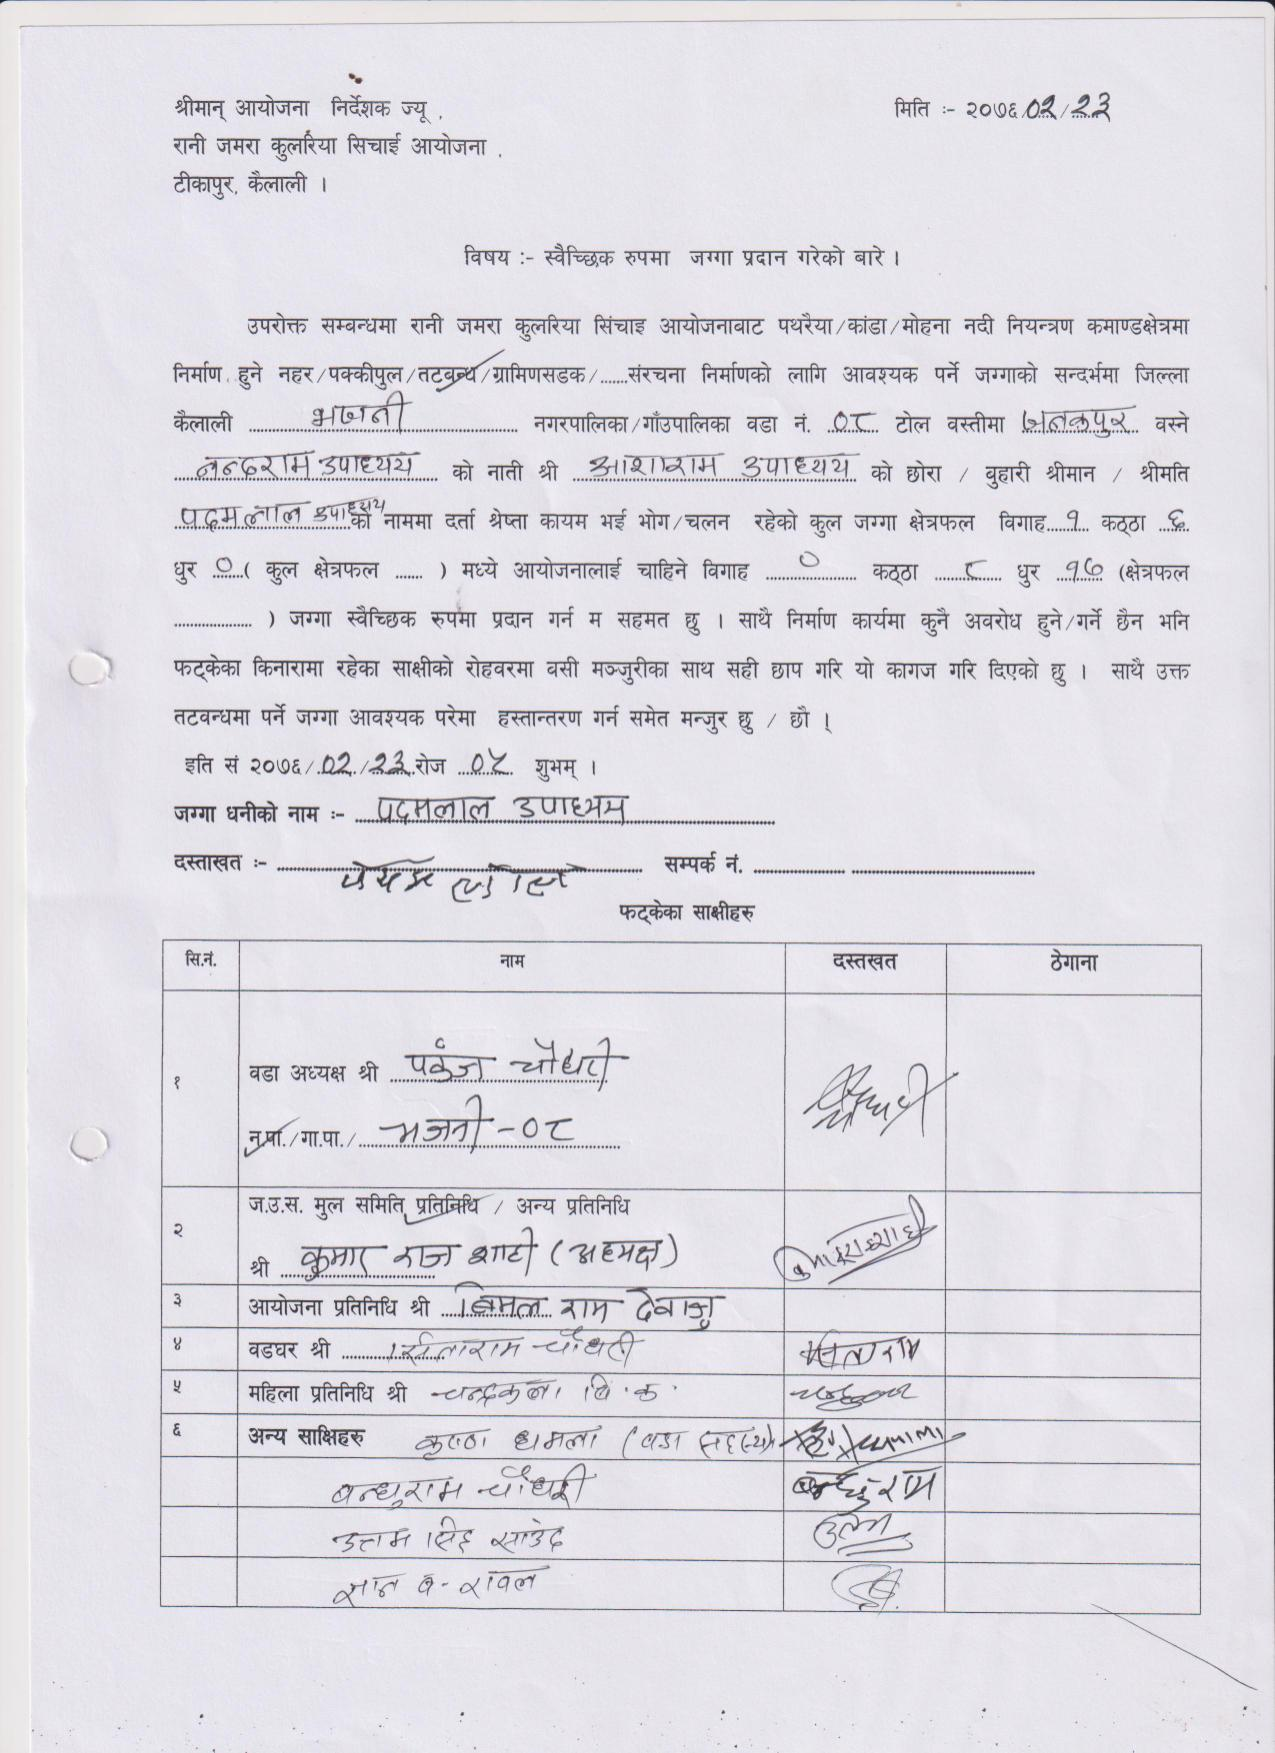 श्रीमान् आयोजना निर्देशक ज्यू ,
मिति :- २०७६/०२/२३
रानी जमरा कुलरिया सिचाई आयोजना ,
टीकापुर, कैलाली ।
विषय :- स्वैच्छिक रुपमा जग्गा प्रदान गरेको बारे ।
उपरोक्त सम्बन्धमा रानी जमरा कुलरिया सिंचाइ आयोजनाबाट पथरैया/कांडा/मोहना नदी नियन्त्रण कमाण्डक्षेत्रमा
निर्माण हुने नहर/पक्कीपुल/तटबन्ध/ग्रामिणसडक/......संरचना निर्माणको लागि आवश्यक पर्ने जग्गाको सन्दर्भमा जिल्ला
कैलाली भजनी नगरपालिका/गाँउपालिका वडा नं. ०८ टोल वस्तीमा जनकपुर वस्ने
नन्दराम उपाध्यय को नाती श्री आशाराम उपाध्यय को छोरा / बुहारी श्रीमान / श्रीमति
पदमलाल उपाध्यय को नाममा दर्ता श्रेष्ता कायम भई भोग/चलन रहेको कुल जग्गा क्षेत्रफल विगाह १ कठ्ठा ६
धुर ० ( कुल क्षेत्रफल ...... ) मध्ये आयोजनालाई चाहिने विगाह ० कठ्ठा ८ धुर १७ (क्षेत्रफल
.................. ) जग्गा स्वैच्छिक रुपमा प्रदान गर्न म सहमत छु । साथै निर्माण कार्यमा कुनै अवरोध हुने/गर्ने छैन भनि
फट्केका किनारामा रहेका साक्षीको रोहवरमा वसी मञ्जुरीका साथ सही छाप गरि यो कागज गरि दिएको छु । साथै उक्त
तटवन्धमा पर्ने जग्गा आवश्यक परेमा हस्तान्तरण गर्न समेत मन्जुर छु / छौ ।
इति सं २०७६/०२/२३ रोज ०५ शुभम् ।
जग्गा धनीको नाम :- पदमलाल उपाध्यय
दस्ताखत :- सम्पर्क नं.
फट्केका साक्षीहरु
सि.नं. नाम दस्तखत ठेगाना
१ वडा अध्यक्ष श्री पकंज चौधरी
न.पा./गा.पा./ भजनी-०८
२ ज.उ.स. मुल समिति प्रतिनिधि / अन्य प्रतिनिधि
श्री कुमार राज शाही (अध्यक्ष)
३ आयोजना प्रतिनिधि श्री बिमल राम देवाजु
४ वडघर श्री सिताराम चौधरी सिताराम
५ महिला प्रतिनिधि श्री चन्द्रकला बि.क.
६ अन्य साक्षिहरु कृष्ण धमला (वडा सदस्य)
बन्धुराम चौधरी बन्धुराम
उत्तम सिंह साउद
ज्ञान ब. रावल